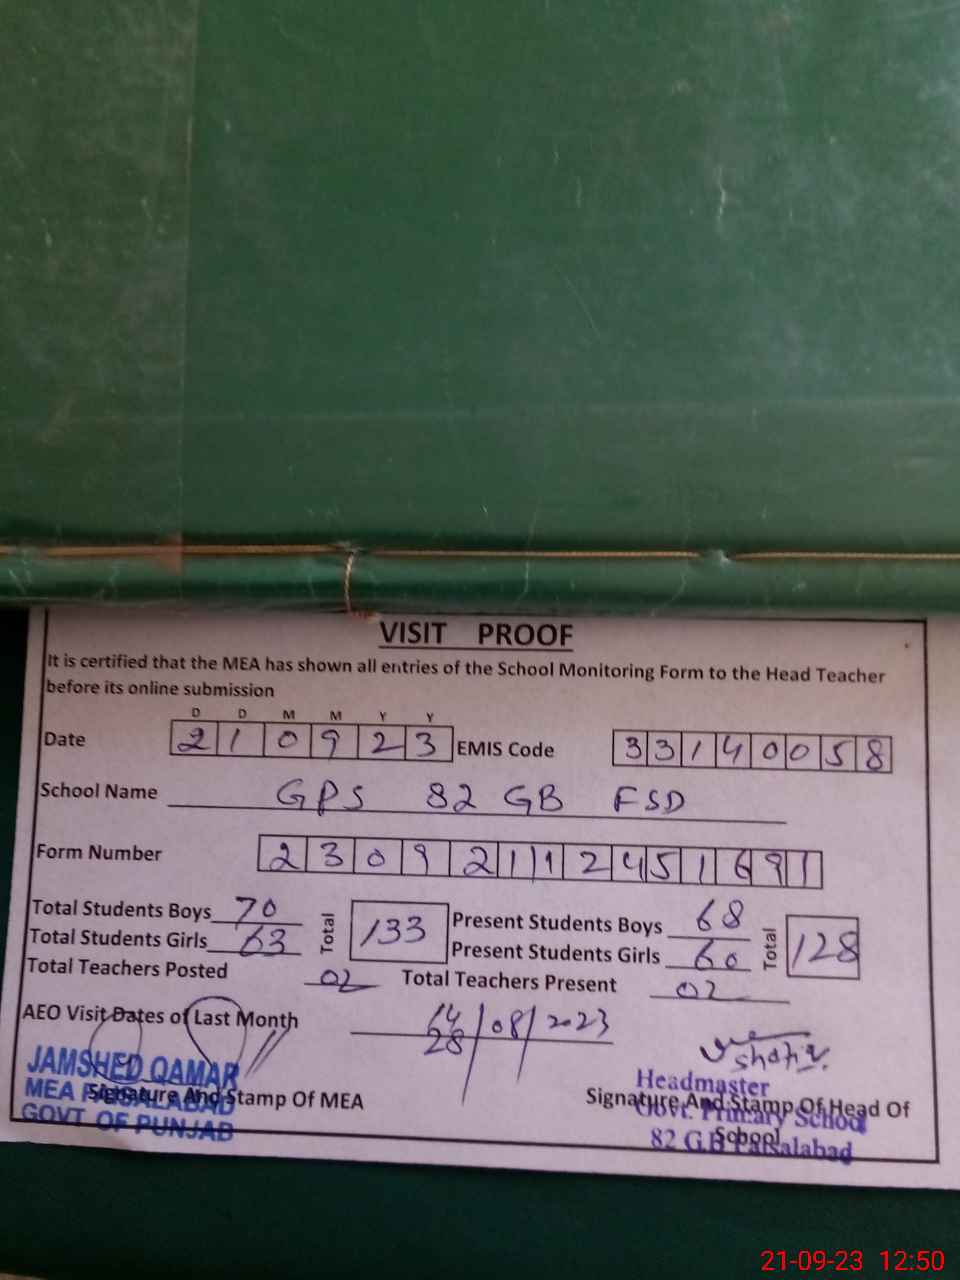 VISIT PROOF
It is certified that the MEA has shown all entries of the School Monitoring Form to the Head Teacher
before its online submission
D D M M Y Y
Date 2 1 0 9 2 3 EMIS Code 3 3 1 4 0 0 5 8
School Name GPS 82 GB FSD
Form Number 2 3 0 9 2 1 1 2 4 5 1 6 9 1
Total Students Boys 70 Total 133 Present Students Boys 68 Total 128
Total Students Girls 63 Present Students Girls 60
Total Teachers Posted 02 Total Teachers Present 02
AEO Visit Dates of Last Month 14/08/2023
28
JAMSHED QAMAR
MEA FAISALABAD
GOVT OF PUNJAB
Signature And Stamp Of MEA
Headmaster
Govt. Primary School
82 G.B Faisalabad
Signature And Stamp Of Head Of
School
21-09-23 12:50